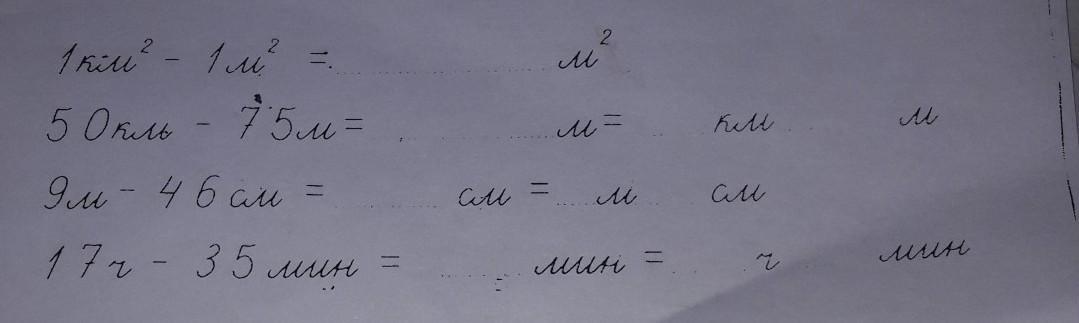 1км² - 1м² = ............ м²
50км - 75м = ............ м = ... км ... м
9м - 46см = ............ см = .... м ... см
17ч - 35мин = ........ мин = ... ч ... мин